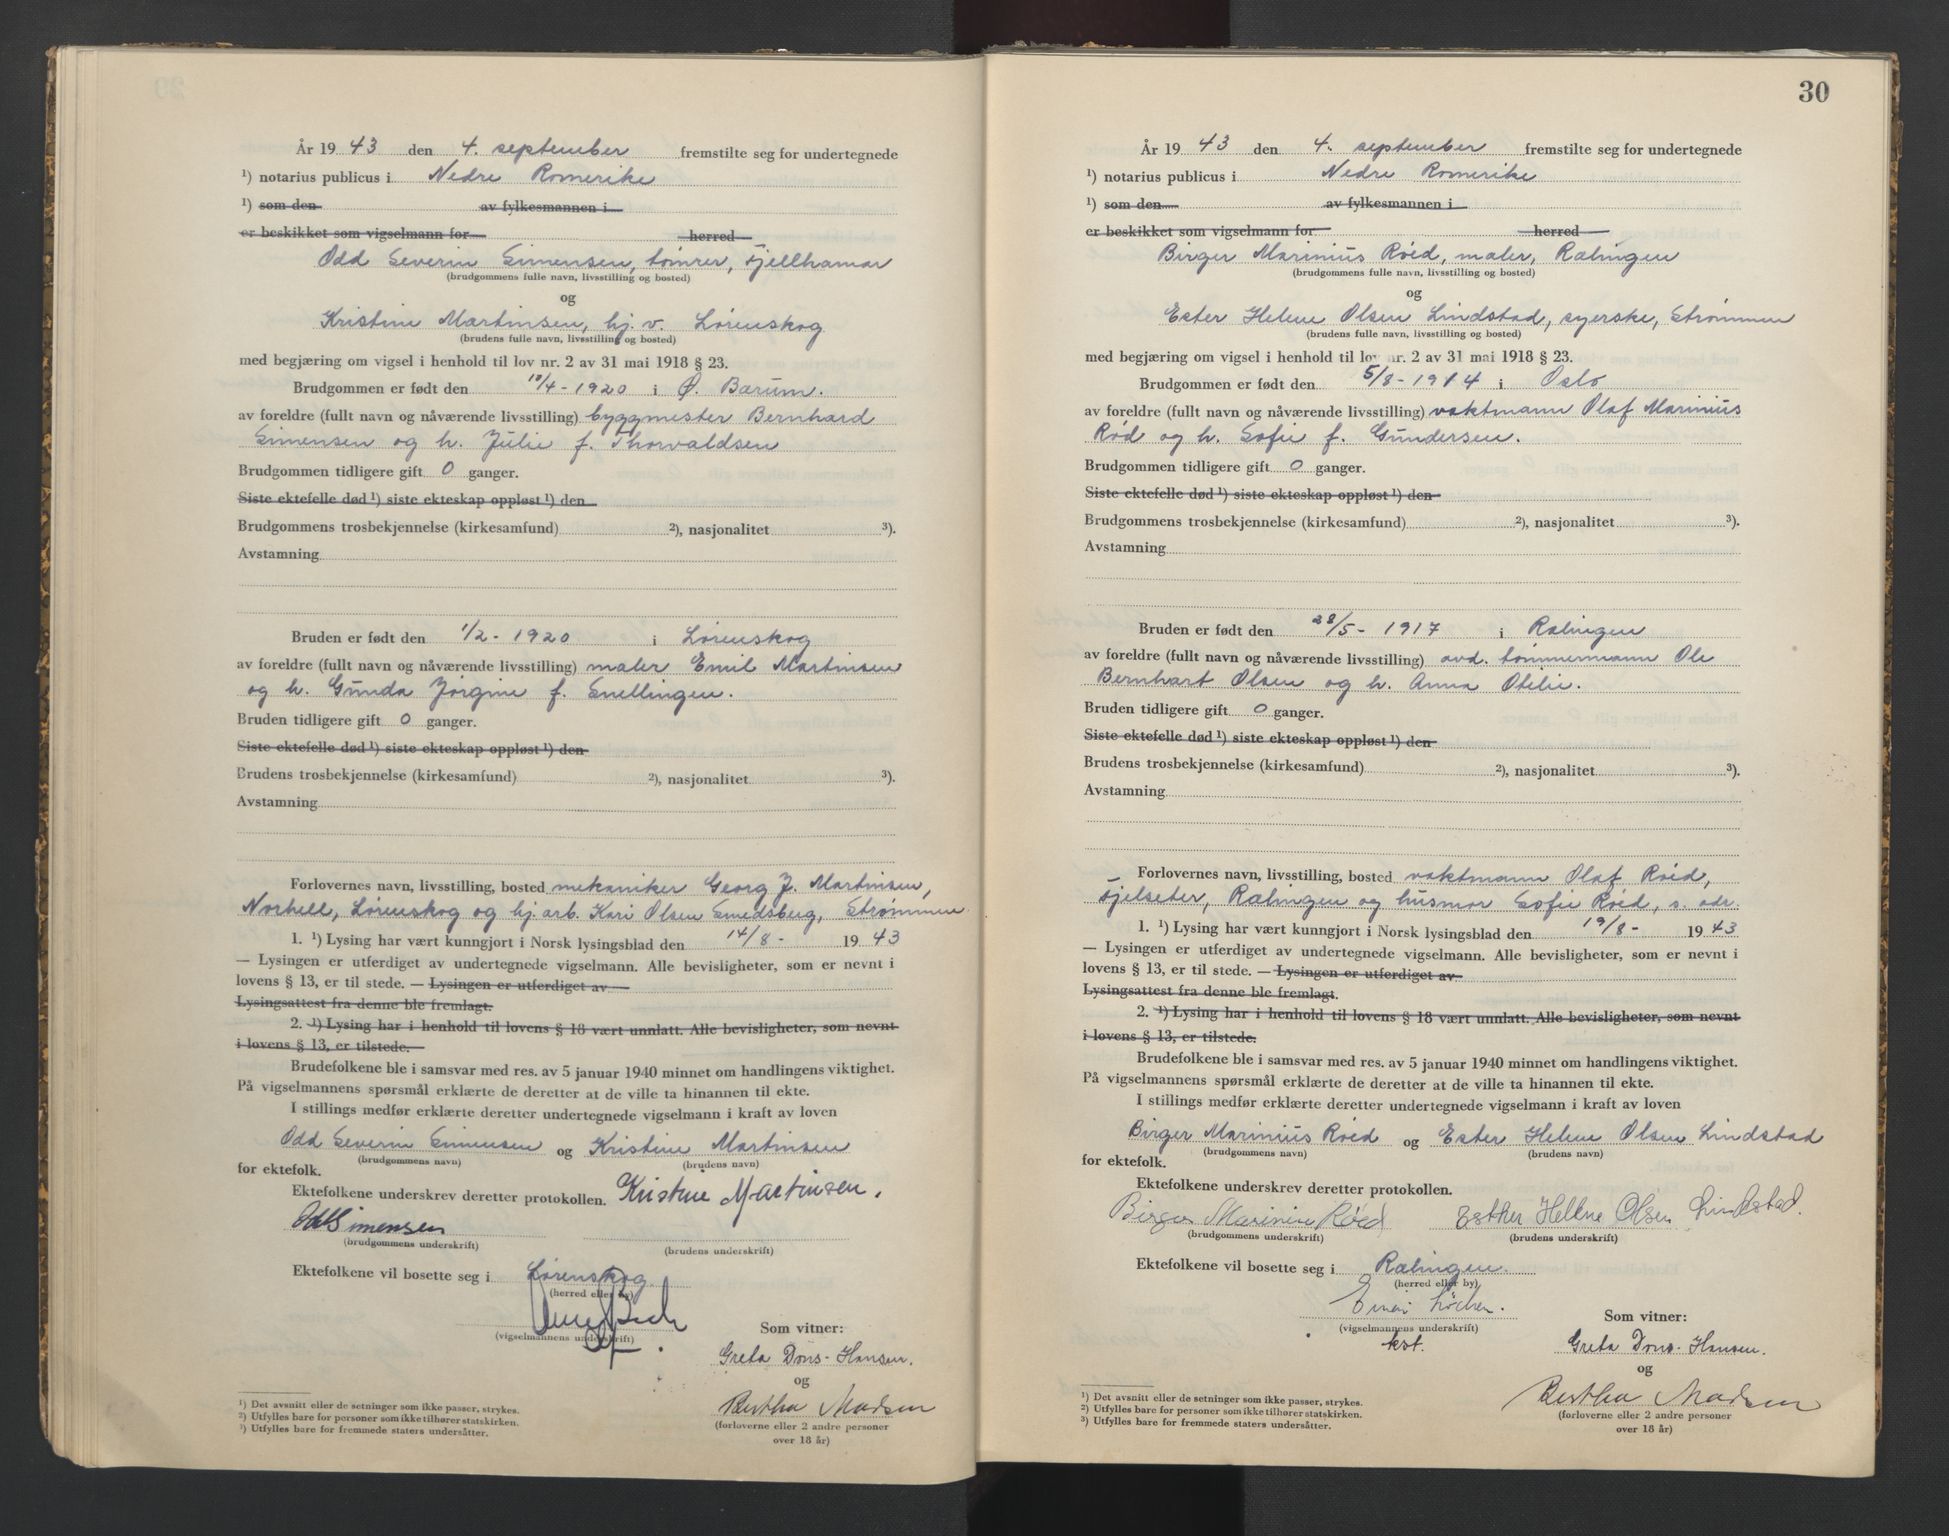 År 19 43 den 4. september fremstilte seg for undertegnede
¹) notarius publicus i Nedre Romerike
¹) som den av fylkesmannen i
er beskikket som vigselmann for herred
Odd Severin Simensen, tømrer, Fjellhamar
(brudgommens fulle navn, livsstilling og bosted)
og
Kristine Martinsen, hj. v. Lørenskog
(brudens fulle navn, livsstilling og bosted)
med begjæring om vigsel i henhold til lov nr. 2 av 31 mai 1918 § 23.
Brudgommen er født den 10/4 - 1920 i Ø. Bærum.
av foreldre (fullt navn og nåværende livsstilling) byggmester Bernhard
Simensen og h. Julie f. Thorvaldsen
Brudgommen tidligere gift 0 ganger.
Siste ektefelle død ¹) siste ekteskap oppløst ¹) den
Brudgommens trosbekjennelse (kirkesamfund) ²), nasjonalitet ³).
Avstamning
Bruden er født den 1/2 - 1920 i Lørenskog
av foreldre (fullt navn og nåværende livsstilling) maler Emil Martinsen
og h. Gunda Jørgine f. Snellingen.
Bruden tidligere gift 0 ganger.
Siste ektefelle død ¹) siste ekteskap oppløst ¹) den
Brudens trosbekjennelse (kirkesamfund) ²), nasjonalitet ³).
Avstamning
Forlovernes navn, livsstilling, bosted mekaniker Georg J. Martinsen,
Norhell, Lørenskog og hj. arb. Kari Olsen Smedsberg, Strømmen
1. ¹) Lysing har vært kunngjort i Norsk lysingsblad den 14/8 - 19 43
— Lysingen er utferdiget av undertegnede vigselmann. Alle bevisligheter, som er nevnt i
lovens § 13, er til stede. — Lysingen er utferdiget av
Lysingsattest fra denne ble fremlagt.
2. ¹) Lysing har i henhold til lovens § 18 vært unnlatt. Alle bevisligheter, som nevnt
i lovens § 13, er tilstede.
Brudefolkene ble i samsvar med res. av 5 januar 1940 minnet om handlingens viktighet.
På vigselmannens spørsmål erklærte de deretter at de ville ta hinannen til ekte.
I stillings medfør erklærte deretter undertegnede vigselmann i kraft av loven
Odd Severin Simensen og Kristine Martinsen
(brudgommens navn) (brudens navn)
for ektefolk.
Ektefolkene underskrev deretter protokollen. Kristine Martinsen.
Odd Simensen
(brudgommens underskrift) (brudens underskrift)
Ektefolkene vil bosette seg i Lørenskog
(herred eller by)
(vigselmannens underskrift)
Som vitner:
Greta Dons-Hansen.
og
Bertha Madsen
(forloverne eller 2 andre personer
over 18 år)
¹) Det avsnitt eller de setninger som ikke passer, strykes.
²) Utfylles bare for personer som ikke tilhører statskirken.
³) Utfylles bare for fremmede staters undersåtter.
30
År 19 43 den 4. september fremstilte seg for undertegnede
¹) notarius publicus i Nedre Romerike
¹) som den av fylkesmannen i
er beskikket som vigselmann for herred
Birger Marinius Røed, maler, Rælingen
(brudgommens fulle navn, livsstilling og bosted)
og
Ester Helene Olsen Lindstad, syerske, Strømmen
(brudens fulle navn, livsstilling og bosted)
med begjæring om vigsel i henhold til lov nr. 2 av 31 mai 1918 § 23.
Brudgommen er født den 5/8 - 1914 i Oslo
av foreldre (fullt navn og nåværende livsstilling) vaktmann Olaf Marinius
Rød og h. Sofie f. Gundersen.
Brudgommen tidligere gift 0 ganger.
Siste ektefelle død ¹) siste ekteskap oppløst ¹) den
Brudgommens trosbekjennelse (kirkesamfund) ²), nasjonalitet ³).
Avstamning
Bruden er født den 28/5 - 1917 i Rælingen
av foreldre (fullt navn og nåværende livsstilling) avd. tømmermann Ole
Bernhart Olsen og h. Anna Otelie.
Bruden tidligere gift 0 ganger.
Siste ektefelle død ¹) siste ekteskap oppløst ¹) den
Brudens trosbekjennelse (kirkesamfund) ²), nasjonalitet ³).
Avstamning
Forlovernes navn, livsstilling, bosted vaktmann Olaf Røed,
Fjelseter, Rælingen og husmor Sofie Røed, s. adr.
1. ¹) Lysing har vært kunngjort i Norsk lysingsblad den 19/8 - 19 43
— Lysingen er utferdiget av undertegnede vigselmann. Alle bevisligheter, som er nevnt i
lovens § 13, er til stede. — Lysingen er utferdiget av
Lysingsattest fra denne ble fremlagt.
2. ¹) Lysing har i henhold til lovens § 18 vært unnlatt. Alle bevisligheter, som nevnt
i lovens § 13, er tilstede.
Brudefolkene ble i samsvar med res. av 5 januar 1940 minnet om handlingens viktighet.
På vigselmannens spørsmål erklærte de deretter at de ville ta hinannen til ekte.
I stillings medfør erklærte deretter undertegnede vigselmann i kraft av loven
Birger Marinius Røed og Ester Helene Olsen Lindstad
(brudgommens navn) (brudens navn)
for ektefolk.
Ektefolkene underskrev deretter protokollen.
Birger Marinius Røed Esther Hellene Olsen Lindstad.
(brudgommens underskrift) (brudens underskrift)
Ektefolkene vil bosette seg i Rælingen.
(herred eller by)
Einar Løchen.
(vigselmannens underskrift)
kst.
Som vitner:
Greta Dons-Hansen.
og
Bertha Madsen
(forloverne eller 2 andre personer
over 18 år)
¹) Det avsnitt eller de setninger som ikke passer, strykes.
²) Utfylles bare for personer som ikke tilhører statskirken.
³) Utfylles bare for fremmede staters undersåtter.